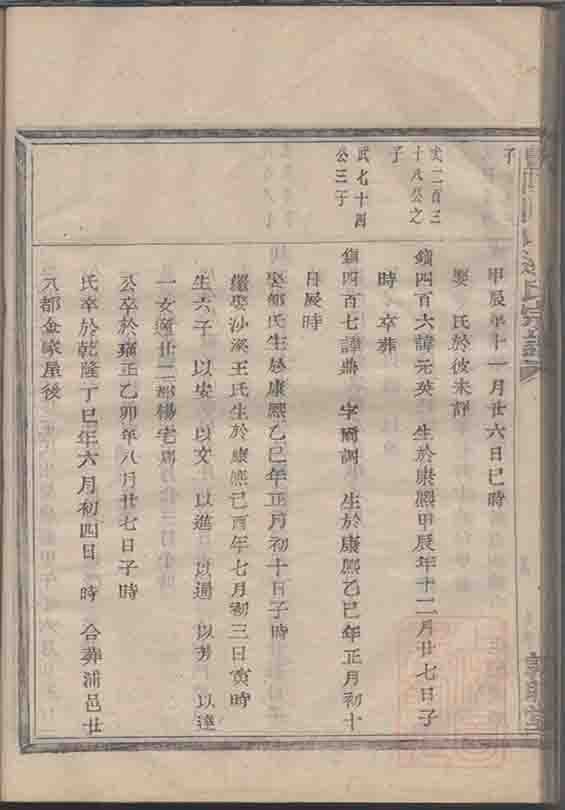 子
甲辰年十一月廿六日巳時
娶 氏於彼未詳
文二百三
十八公之
子
鎮四百六諱元英 生於康熙甲辰年十二月廿七日子
時 卒葬
武七十四
公三子
鎮四百七諱鼎 字爾調 生於康熙乙巳年正月初十
日辰時
娶鄭氏生於康熙乙巳年正月初十日子時
繼娶沙溪王氏生於康熙己酉年七月初三日寅時
生六子 以安 以文 以進 以通 以芳 以達
一女適廿二都楊宅
公卒於雍正乙卯年八月廿七日子時
氏卒於乾隆丁巳年六月初四日 時 合葬浦邑廿
六都金家屋後
氏宗譜